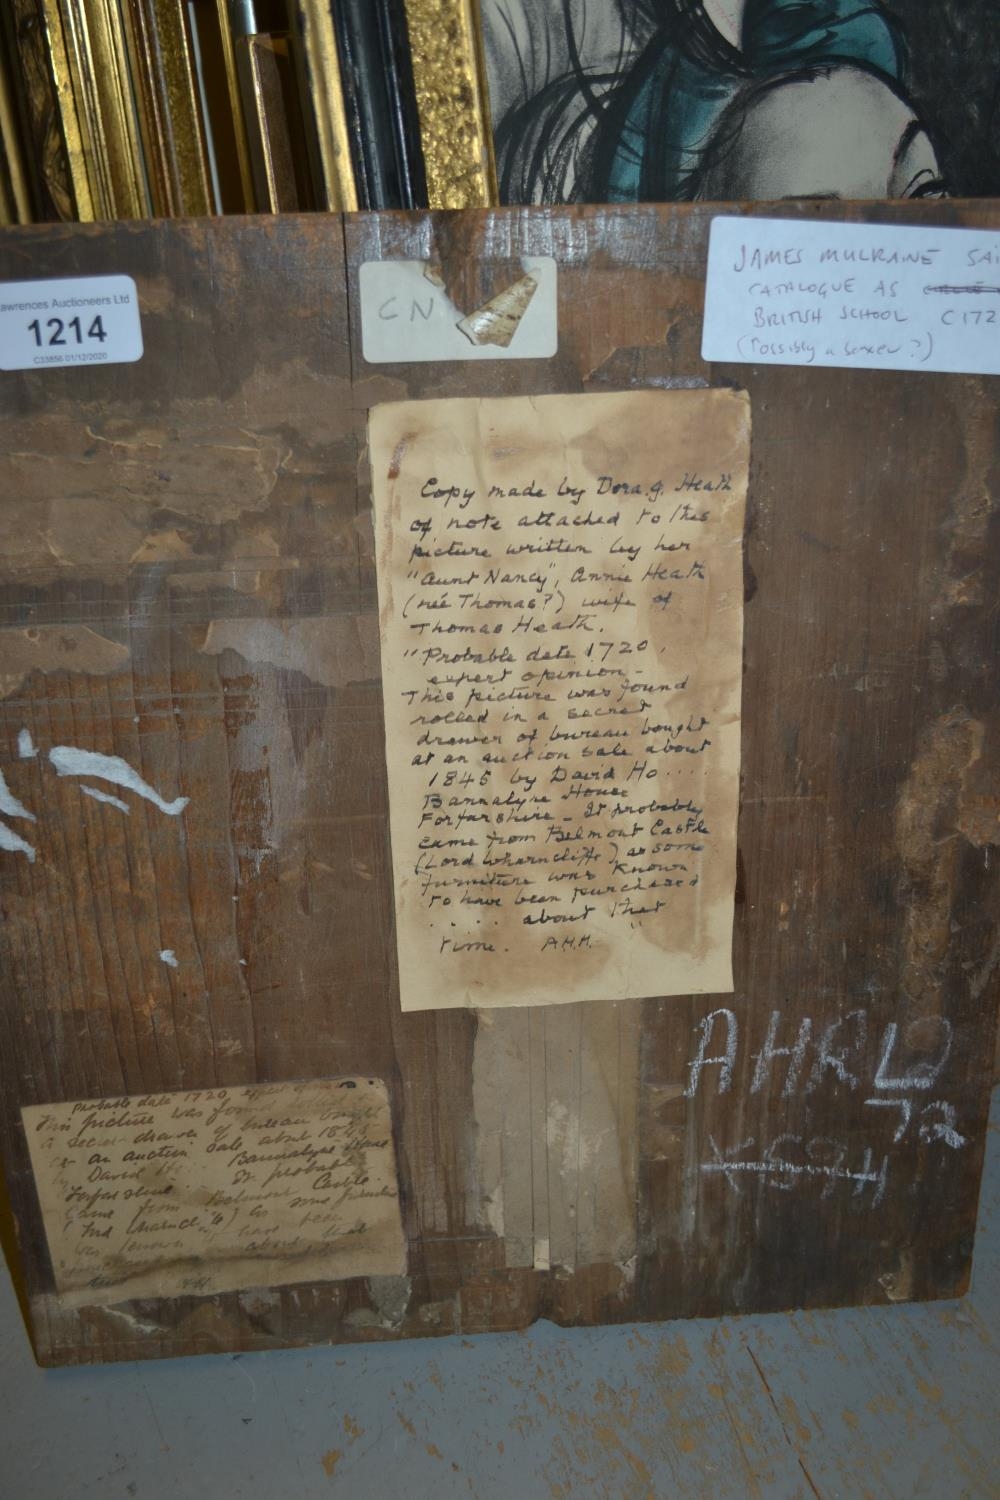 awrences Auctioneers Ltd
1214
C33856 01/12/2020
CN
JAMES MULRAINE SAI
CATALOGUE AS
BRITISH SCHOOL C172
(Possibly a boxer?)
Copy made by Dora.G. Heath
of note attached to this
picture written by her
"Aunt Nancy", Annie Heath
(née Thomas?) wife of
Thomas Heath.
"Probable date 1720,
expert opinion -
This picture was found
rolled in a secret
drawer of bureau bought
at an auction sale about
1845 by David Ho....
Bannalyre House
Forfarshire - It probably
came from Belmont Castle
(Lord Wharncliffe) as some
furniture was known
to have been purchased
.... about that
time. A.H.H. "
Probable date 1720 expert
This picture was found rolled
a secret drawer of bureau bought
at an auction sale about 1845
by David H Bannalyre House
Forfarshire. It probably
came from Belmont Castle.
(Lord Wharncliffe) as some furniture
was known have been
about that
AHRW
72
H59X